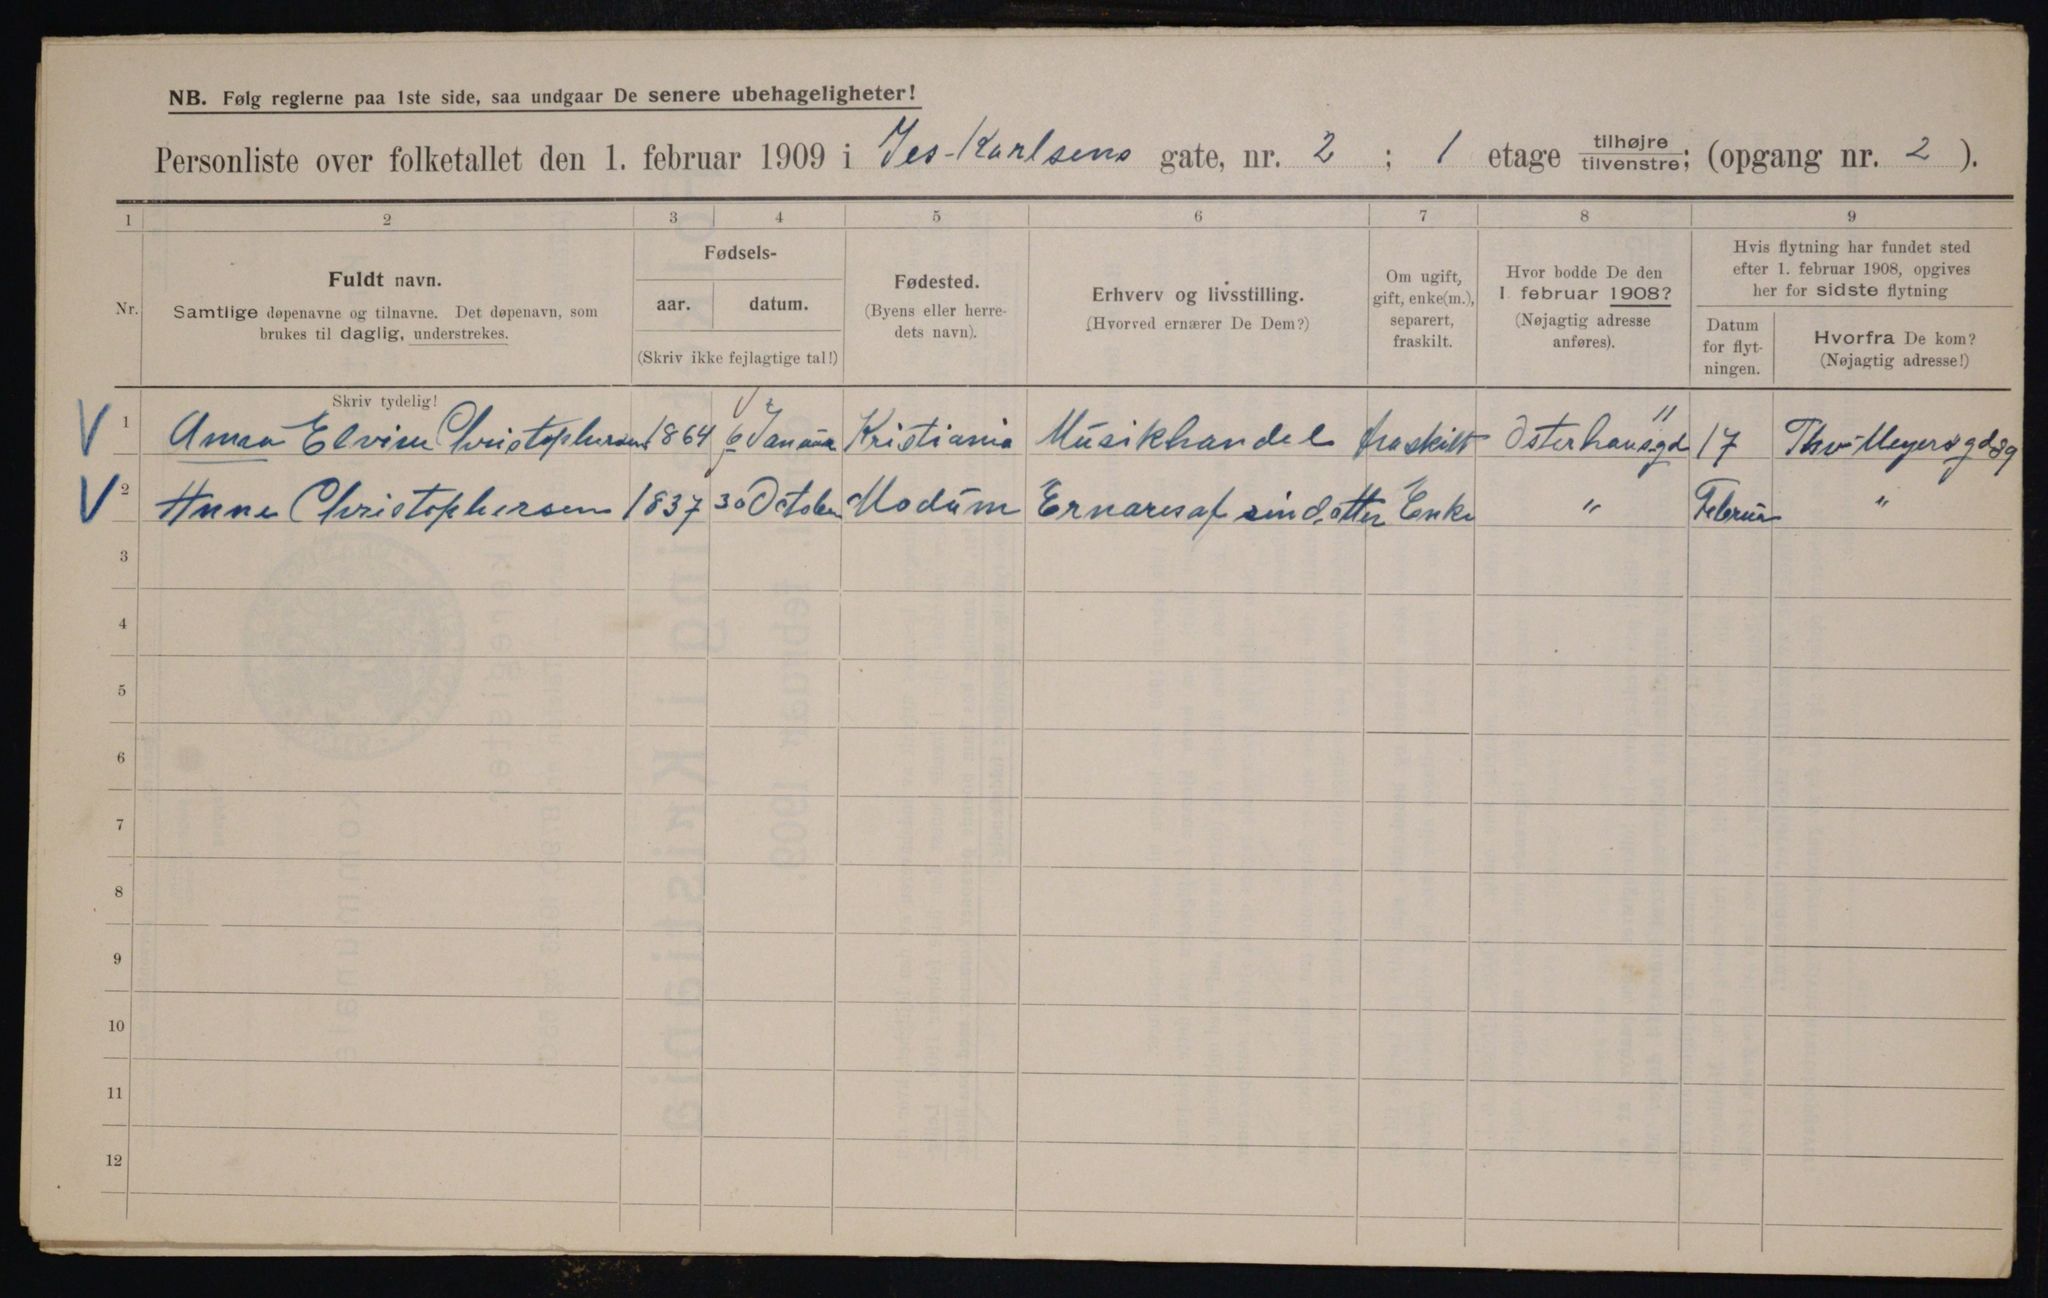 NB. Følg reglerne paa 1ste side, saa undgaar De senere ubehageligheter!
Personliste over folketallet den 1. februar 1909 i Jes-Karlsens gate, nr. 2 ; 1 etage tilhøjre/tilvenstre; (opgang nr. 2 ).
1 2 3 4 5 6 7 8 9
Nr.
Fuldt navn.
Samtlige døpenavne og tilnavne. Det døpenavn, som
brukes til daglig, understrekes.
Fødsels-
aar. datum.
(Skriv ikke fejlagtige tal!)
Fødested.
(Byens eller herre-
dets navn).
Erhverv og livsstilling.
(Hvorved ernærer De Dem?)
Om ugift,
gift, enke(m.),
separert,
fraskilt.
Hvor bodde De den
1. februar 1908?
(Nøjagtig adresse
anføres).
Hvis flytning har fundet sted
efter 1. februar 1908, opgives
her for sidste flytning
Datum
for flyt-
ningen.
Hvorfra De kom?
(Nøjagtig adresse!)
Skriv tydelig!
V 1 Anna Elvine Christophersen 1864 6 Januar Kristiania Musikhandel fraskilt Osterhausgd 11 17 Thv-Meyersgd 89
V 2 Anne Christophersen 1837 30 October Modum Ernæres af sin datter Enke " Februar "
3
4
5
6
7
8
9
10
11
12